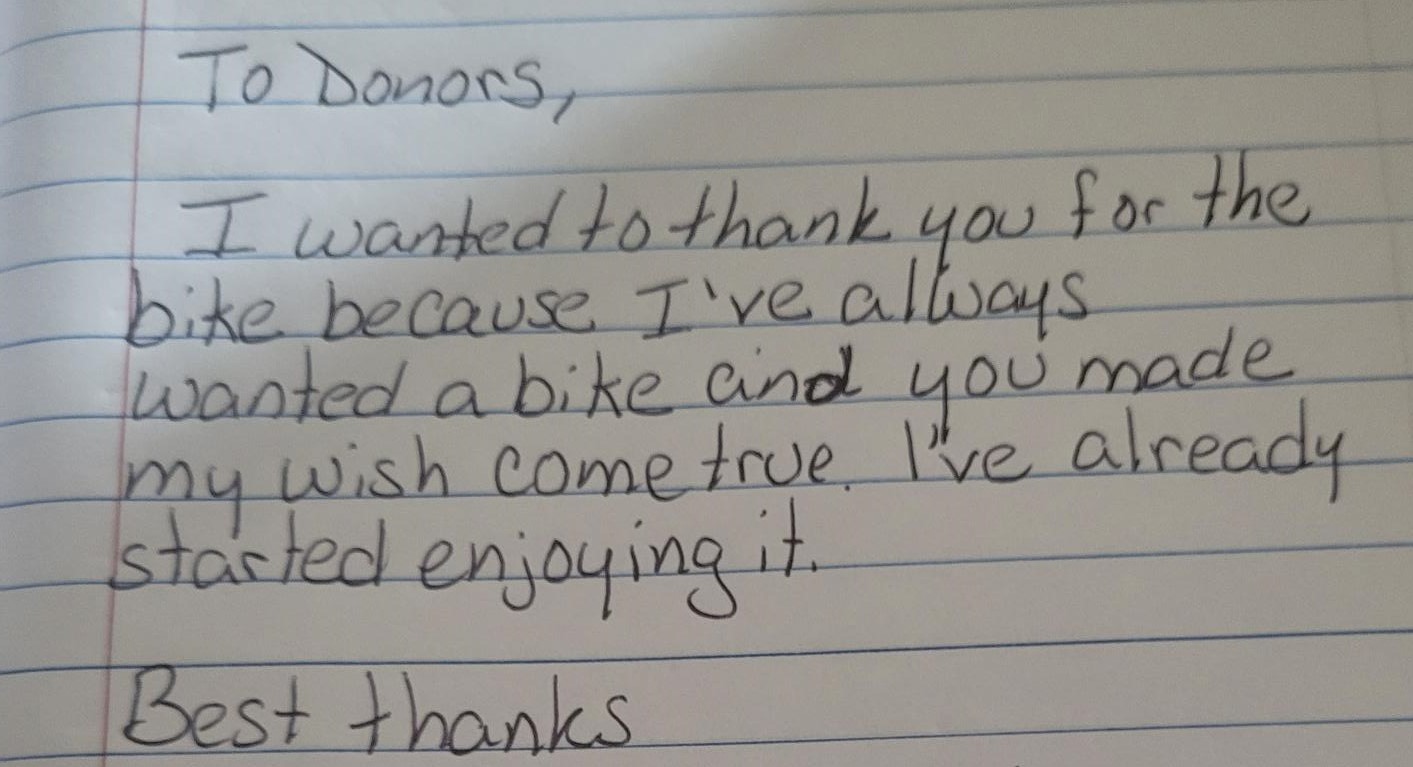 To Donors,
I wanted to thank you for the
bike because I've allways
wanted a bike and you made
my wish come true. I've already
started enjoying it.
Best thanks